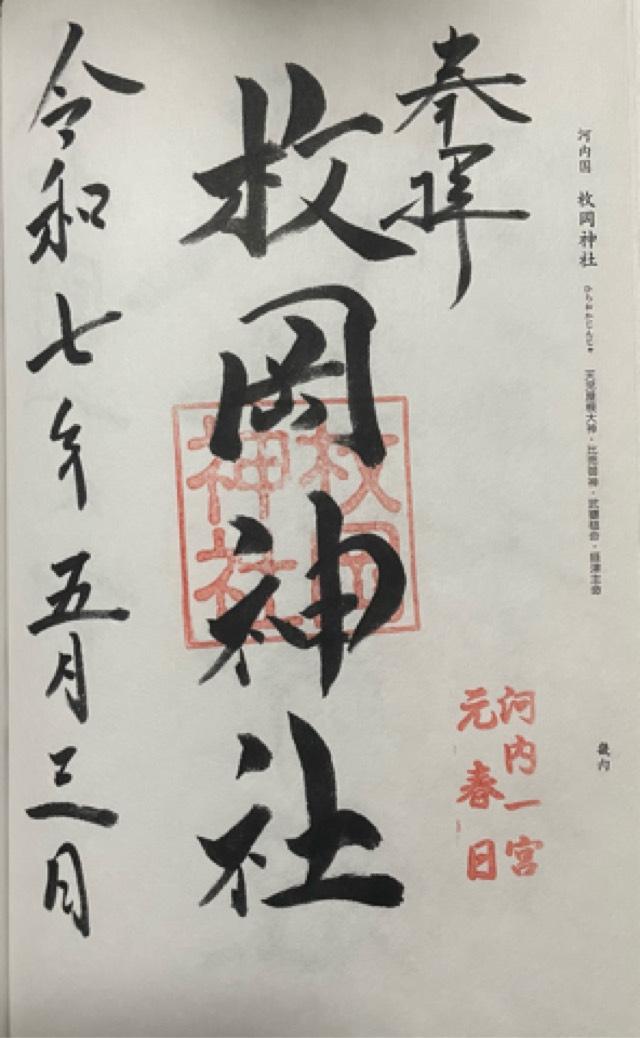 河内国 枚岡神社 ひらおかじんじゃ 天児屋根大神・比売御神・武甕槌命・経津主命
畿内
奉拝
河内一宮
元春日
枚岡神社
枚岡
神社
令和七年五月三日